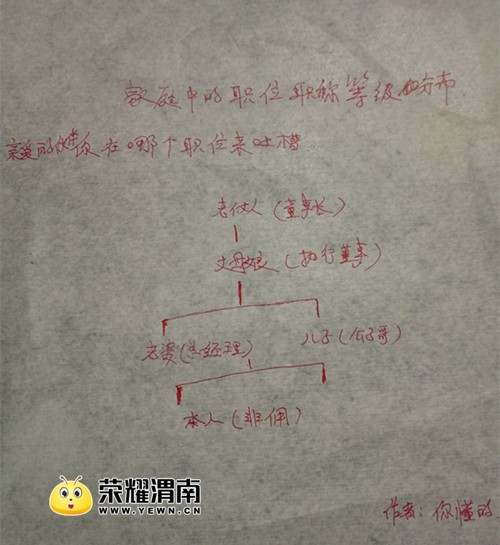 家庭中的职位职称等级的分布
亲爱的 你在哪个职位来吐槽
老仗人（董事长）
丈母娘（执行董事）
老婆（总经理）
儿子（公子哥）
本人（非佣）
荣耀渭南
WWW.YEWN.CN
作者：你懂的